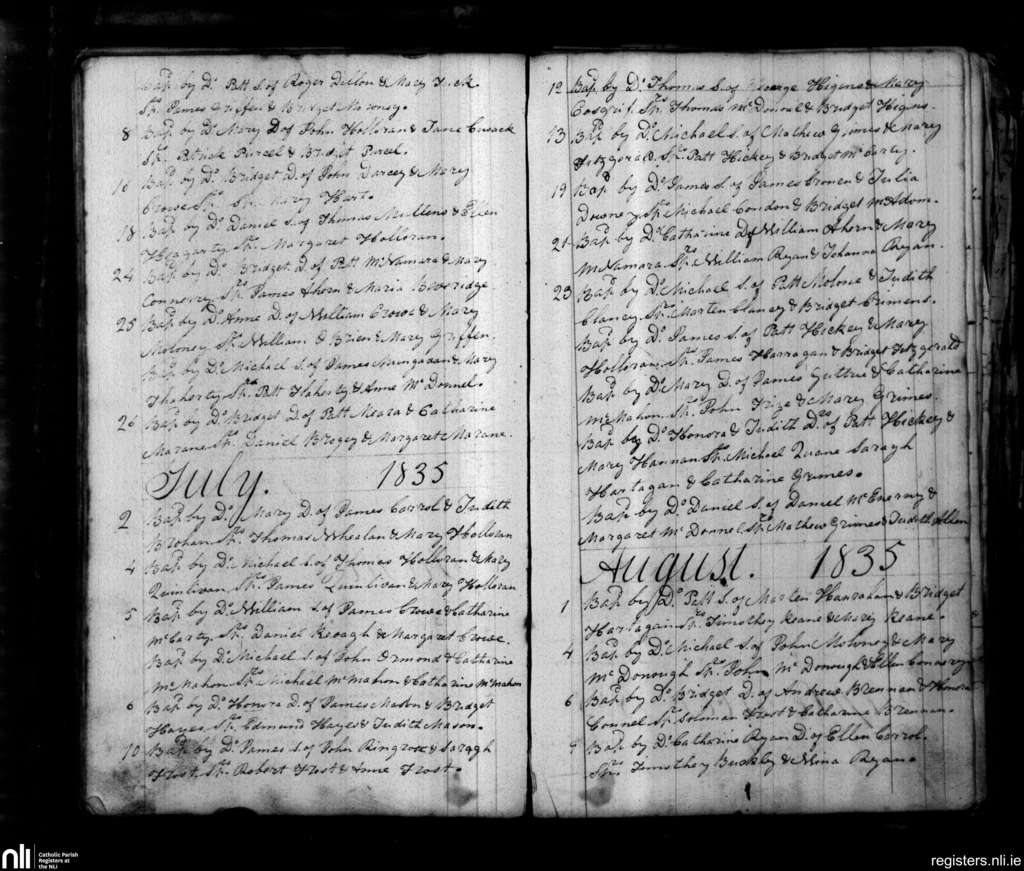 Bapd by Do Patt S. of Roger Dillon & Mary Tuck
Sprs James Griffen & Bridget Maroney.
8 Bapd by Do Mary D of John Holloran & Jane Cusack
Sprs Patrick Purcel & Bridget Purcel.
16 Bapd by Do Bridget D. of John Darcey & Mary
Crowe Spr Mary Hart.
18 Bapd by Do Daniel S. of Thomas Mullens & Ellen
Heagarty Spr Margaret Holloran.
24 Bapd by Do Bridget D. of Patt McNamara & Mary
Connerry Sprs James Ahorn & Maria
25 Bapd by Do Anne D. of William Crowe & Mary
Moloney Sprs William O Brien & Mary Griffen.
Bapd by Do Michael S. of James Mungavan & Mary
Flaherty Sprs Patt Flaherty & Anne McDonnel.
26 Bapd by Do Bridget D. of Patt Meara & Catharine
Marane Sprs Daniel & Margaret Marane.
July. 1835
2 Bapd by Do Mary D. of James Carrol & Judith
Brohan Sprs Thomas Whealan & Mary Holloran
4 Bapd by Do Michael S. of Thomas Holloran & Mary
Quinliven Sprs James Quinliven & Mary Holloran
5 Bapd by Do William S. of James Crowe & Catharine
McCarty Sprs Daniel Keoagh & Margaret Crowe.
Bapd by Do Michael S. of John Ormond & Catharine
McMahon Sprs Michael McMahon & Catharine McMahon
6 Bapd by Do Honora D. of James Mason & Bridget
Hayes Sprs Edmund Hayes & Judith Mason.
10 Bapd by Do James S. of John Ringrose & Saragh
Frost Sprs Robert Frost & Anne Frost.
12 Bapd by Do Thomas S. of George Higens & Mary
Cosgrif Sprs Thomas McDonnel & Bridget Higens.
13 Bapd by Do Michael S. of Mathew Grimes & Mary
Fitzgerald Sprs Patt Hickey & Bridget McCarty.
19 Bapd by Do James S. of James Cronen & Julia
Downey Sprs Michael Condon & Bridget McAdom.
21 Bapd by Do Catharine D of William Ahorn & Mary
McNamara Sprs William Ryan & Johanna Ryan.
23 Bapd by Do Michael S. of Patt Molone & Judith
Clancy Sprs Marten Clancy & Bridget Crimens.
Bapd by Do James S. of Patt Hickey & Mary
Holloran Sprs James Harragan & Bridget Fitzgerald
Bapd by Do Mary D. of James Guthrie & Catharine
McMahon Sprs John & Mary Grimes.
Bapd by Do Honora & Judith Drs of Patt Hickey &
Mary Hannan Sprs Michael Quane Saragh
Hartagan & Catharine Grimes.
Bapd by Do Daniel S. of Daniel McEnerny &
Margaret McDonnel Sprs Mathew Grimes & Judith Allen
August. 1835
1 Bapd by Do Patt S. of Marten Hanrahan & Bridget
Hartagan Sprs Timothey Keane & Mary Keane.
4 Bapd by Do Michael S. of John Moloney & Mary
McDonough Sprs John McDonough & Ellen
6 Bapd by Do Bridget D. of Andrew Brennan & Honora
Connel Sprs Soloman Frost & Catharine Brennan.
9 Bapd by Do Catharine Ryan D. of Ellen Carrol.
Sprs Timothey Buckley & Nina Ryan
nli
Catholic Parish
Registers at
the NLI
registers.nli.ie